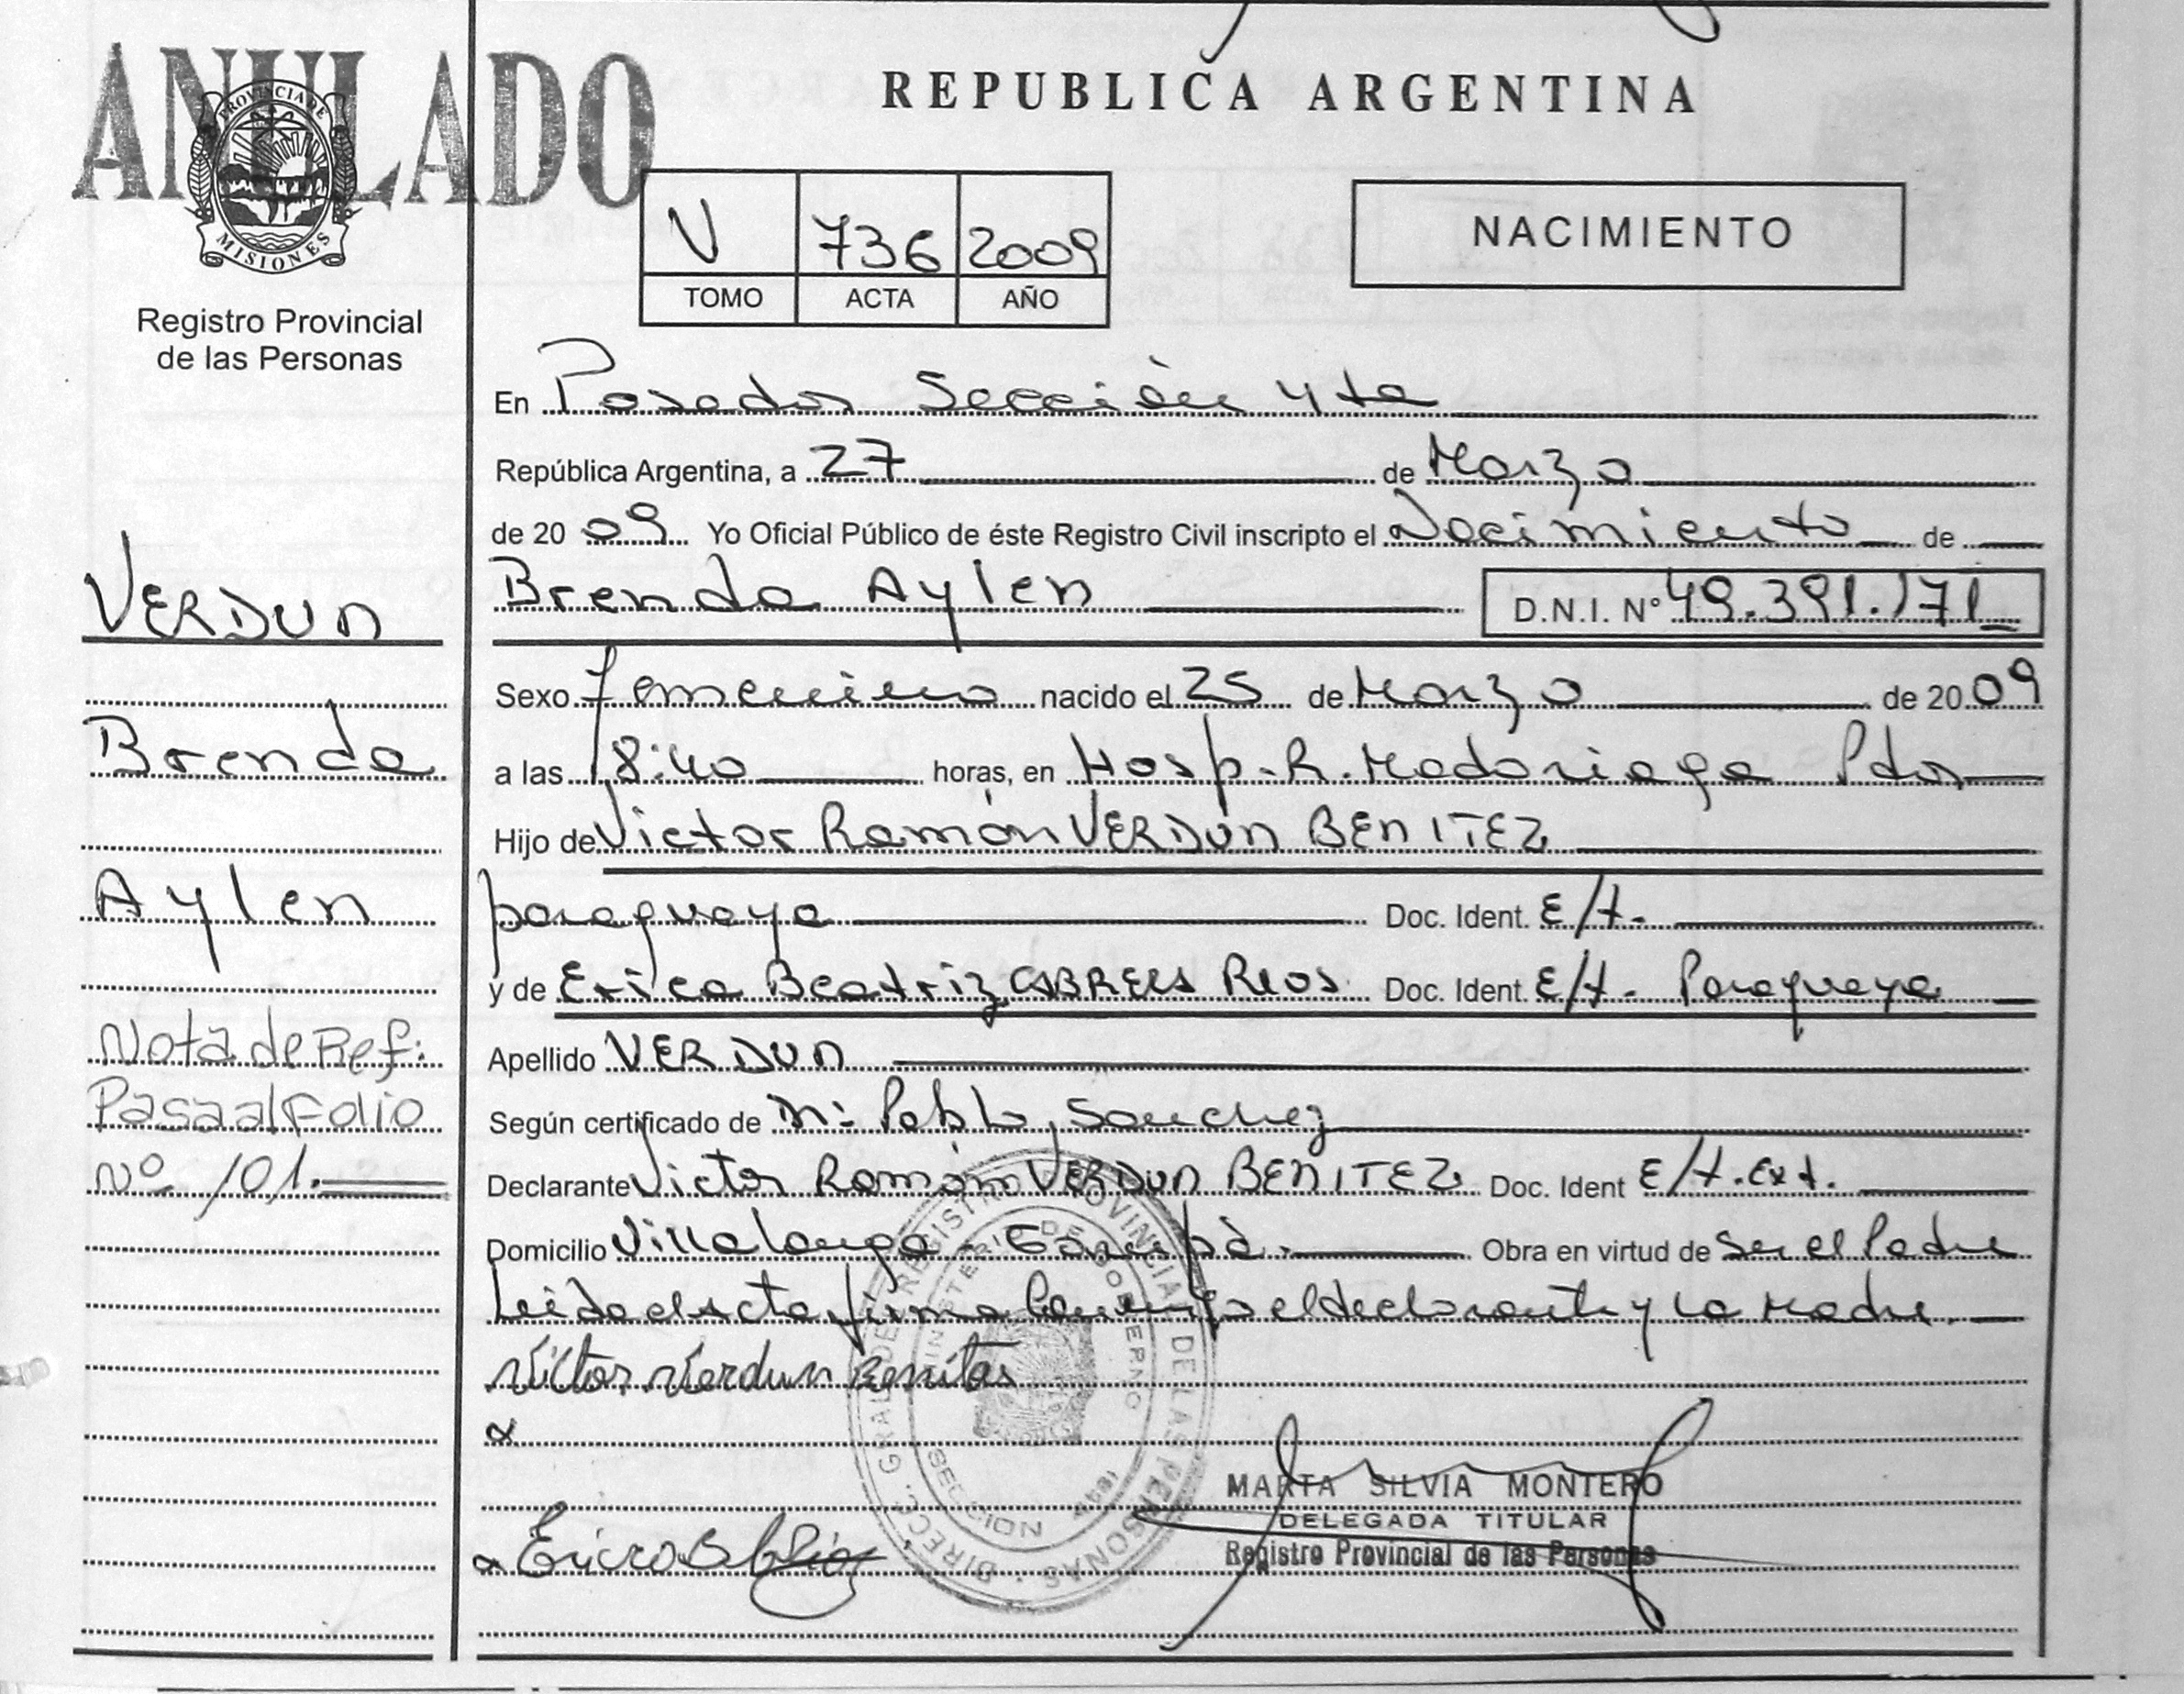 ANULADO
REPUBLICA ARGENTINA
PROVINCIA DE
MISIONES
Registro Provincial
de las Personas
V 736 2009
TOMO ACTA AÑO
NACIMIENTO
En Posadas Sección 4ta
República Argentina, a 27 de Marzo
de 20 09 Yo Oficial Público de éste Registro Civil inscripto el Nacimiento de
Brenda Aylen D.N.I. Nº 49.391.171
Sexo femenino nacido el 25 de Marzo de 20 09
a las 18:40 horas, en Hosp. R. Madariaga Pdas
Hijo de Victor Ramón VERDUN BENITEZ
paraguaya Doc. Ident. E/t.
y de Erica Beatriz Rios Doc. Ident. E/t. Paraguaya
Apellido VERDUN
Según certificado de Dr: Pablo Sanchez
Declarante Victor Ramón VERDUN BENITEZ Doc. Ident E/t. Ext.
Domicilio Villalonga - Garupá. Obra en virtud de ser el Padre
Leida el Acta firma Conmigo el declarante y La Madre.
Victor Verdun Benites
VERDUN
Brenda
Aylen
Nota de Ref:
Pasa al Folio
Nº 101.
DIRECC. GRAL. DE REGISTRO PROVINCIAL DE LAS PERSONAS
MINISTERIO DE GOBIERNO
SECCION
MARTA SILVIA MONTERO
DELEGADA TITULAR
Registro Provincial de las Personas